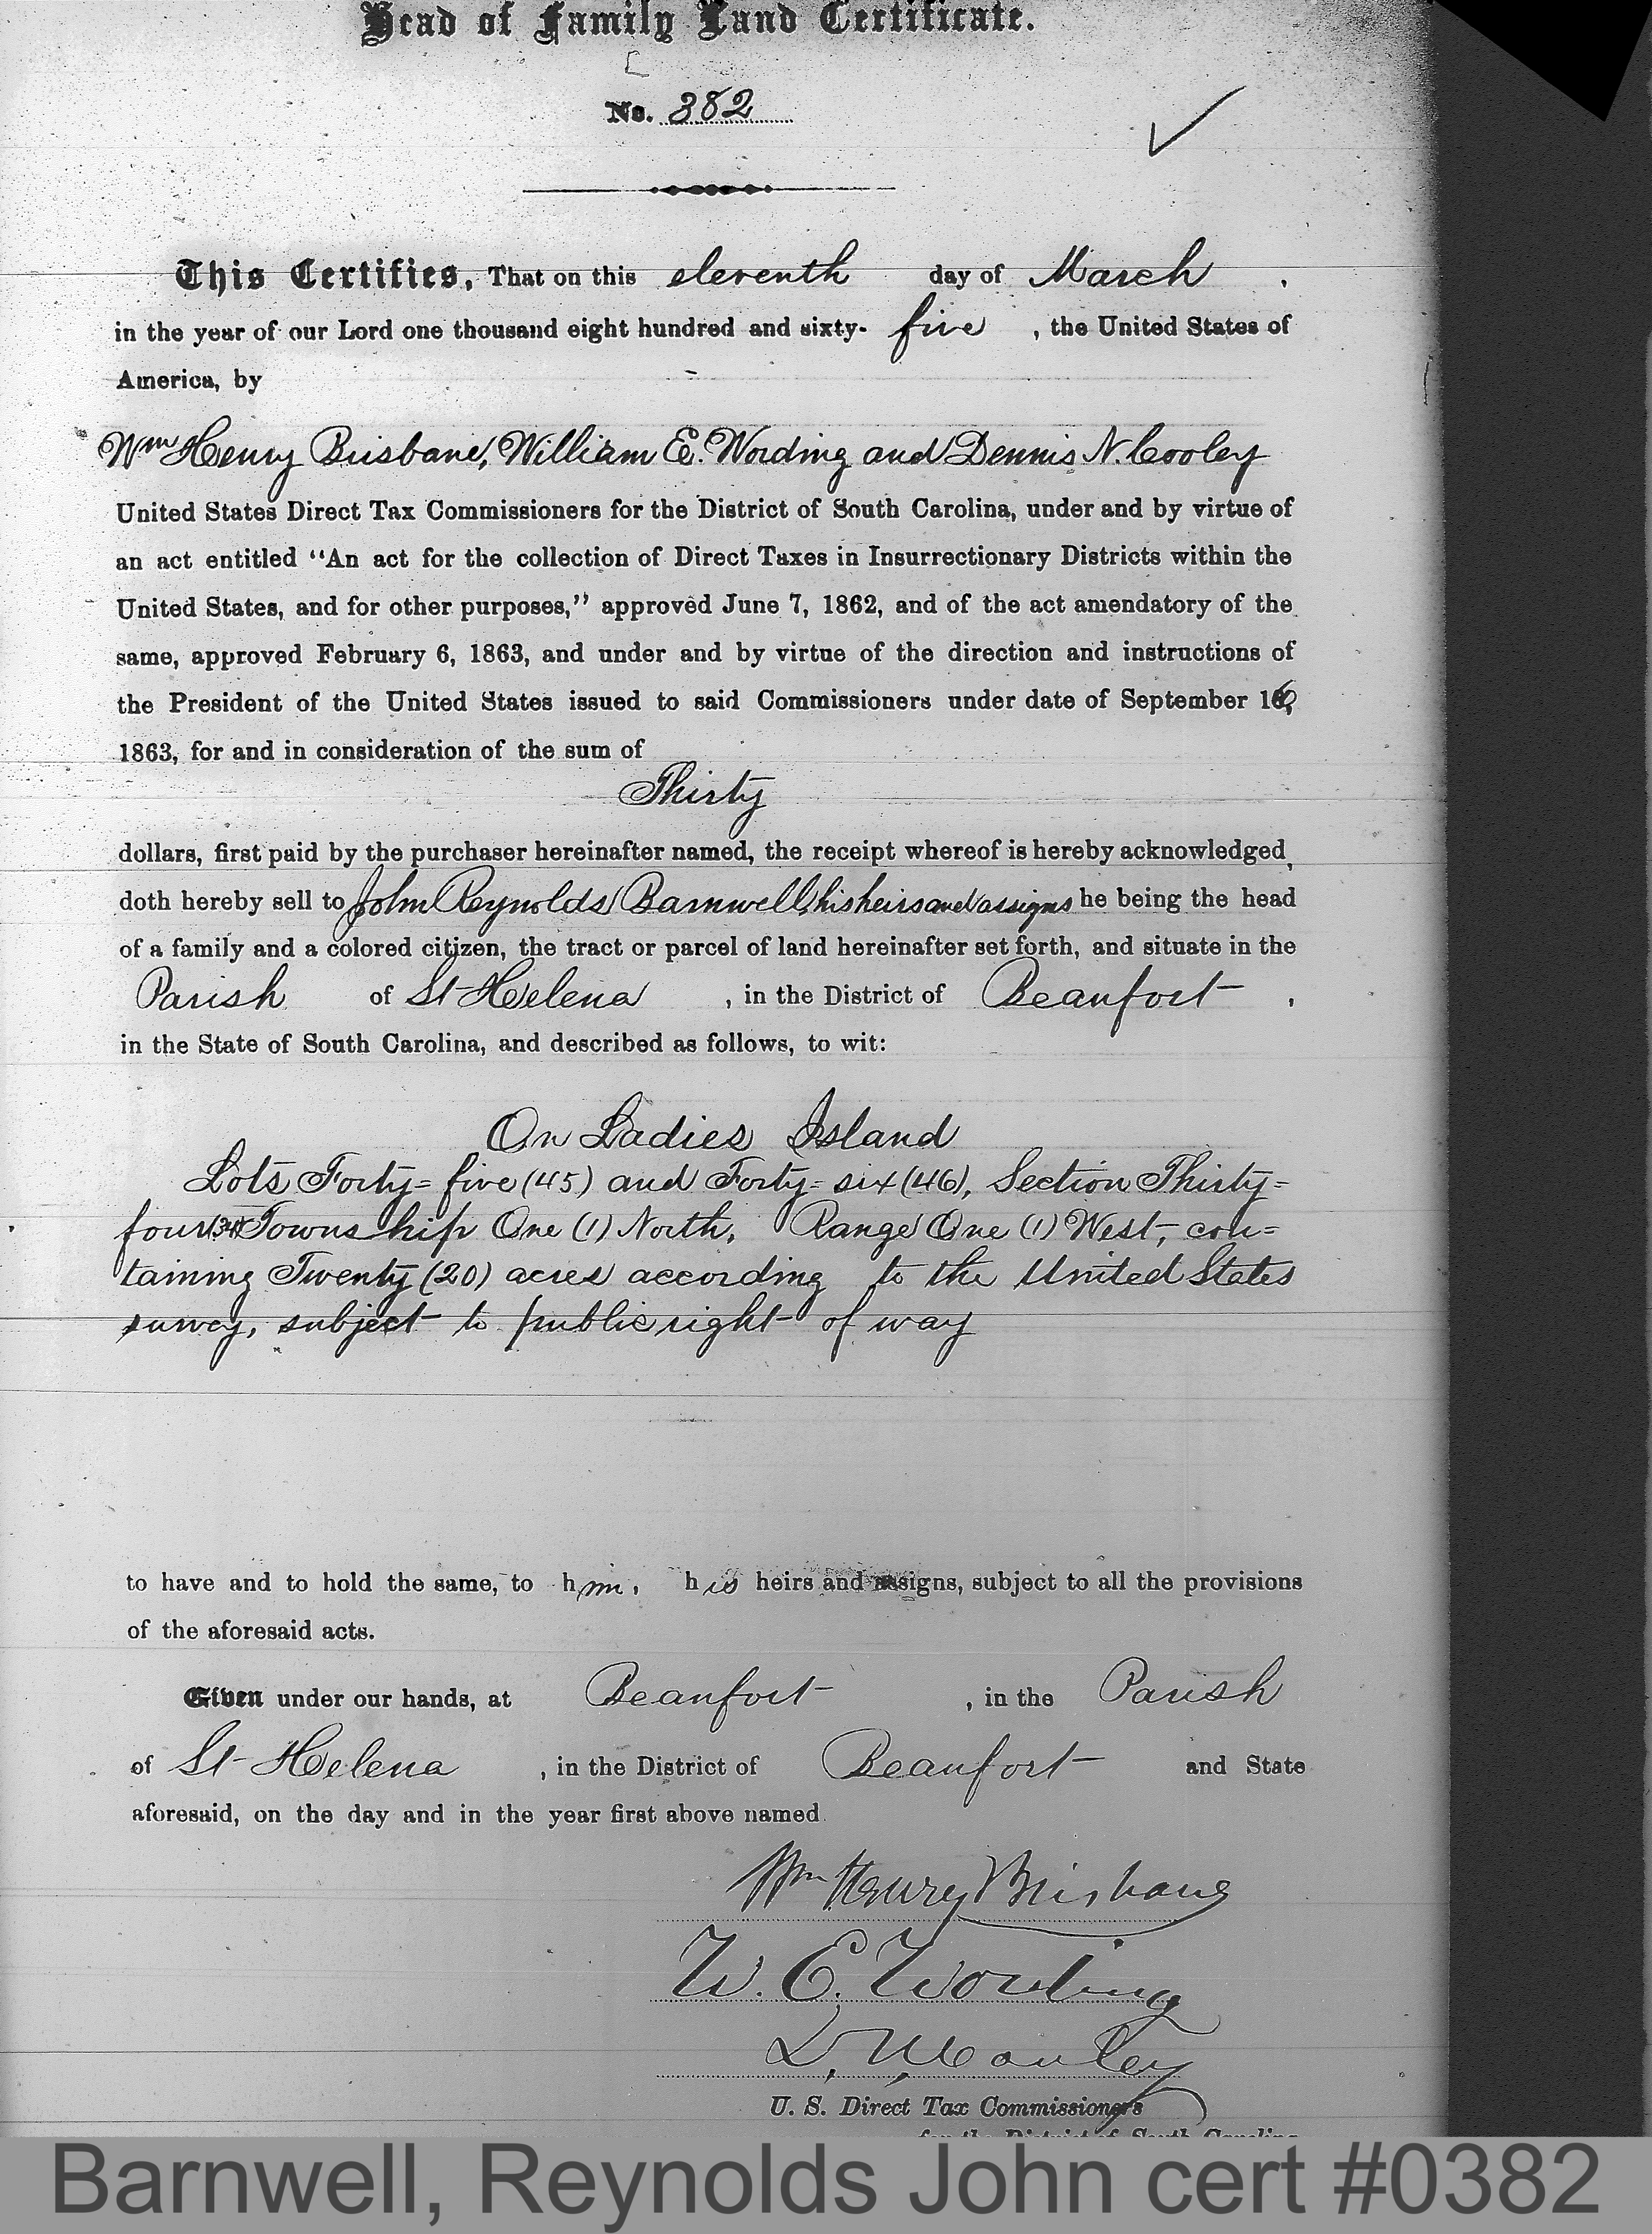 Head of Family Land Certificate.
No. 382
This Certifies, That on this eleventh day of March,
in the year of our Lord one thousand eight hundred and sixty-five, the United States of
America, by
Wm Henry Brisbane, William E. Wording and Dennis N. Cooley
United States Direct Tax Commissioners for the District of South Carolina, under and by virtue of
an act entitled "An act for the collection of Direct Taxes in Insurrectionary Districts within the
United States, and for other purposes," approved June 7, 1862, and of the act amendatory of the
same, approved February 6, 1863, and under and by virtue of the direction and instructions of
the President of the United States issued to said Commissioners under date of September 16,
1863, for and in consideration of the sum of
Thirty
dollars, first paid by the purchaser hereinafter named, the receipt whereof is hereby acknowledged,
doth hereby sell to John Reynolds Barnwell, his heirs and assigns he being the head
of a family and a colored citizen, the tract or parcel of land hereinafter set forth, and situate in the
Parish of St Helena, in the District of Beaufort,
in the State of South Carolina, and described as follows, to wit:
On Ladies Island
Lots Forty=five (45) and Forty=six (46), Section Thirty=
four (34) Township One (1) North, Range One (1) West, con=
taining Twenty (20) acres according to the United States
survey, subject to public right of way
to have and to hold the same, to him, his heirs and assigns, subject to all the provisions
of the aforesaid acts.
Given under our hands, at Beaufort, in the Parish
of St Helena, in the District of Beaufort and State
aforesaid, on the day and in the year first above named.
Wm Henry Brisbane
W. E. Wording
D. N. Cooley
U. S. Direct Tax Commissioners
for the District of South Carolina
Barnwell, Reynolds John cert #0382